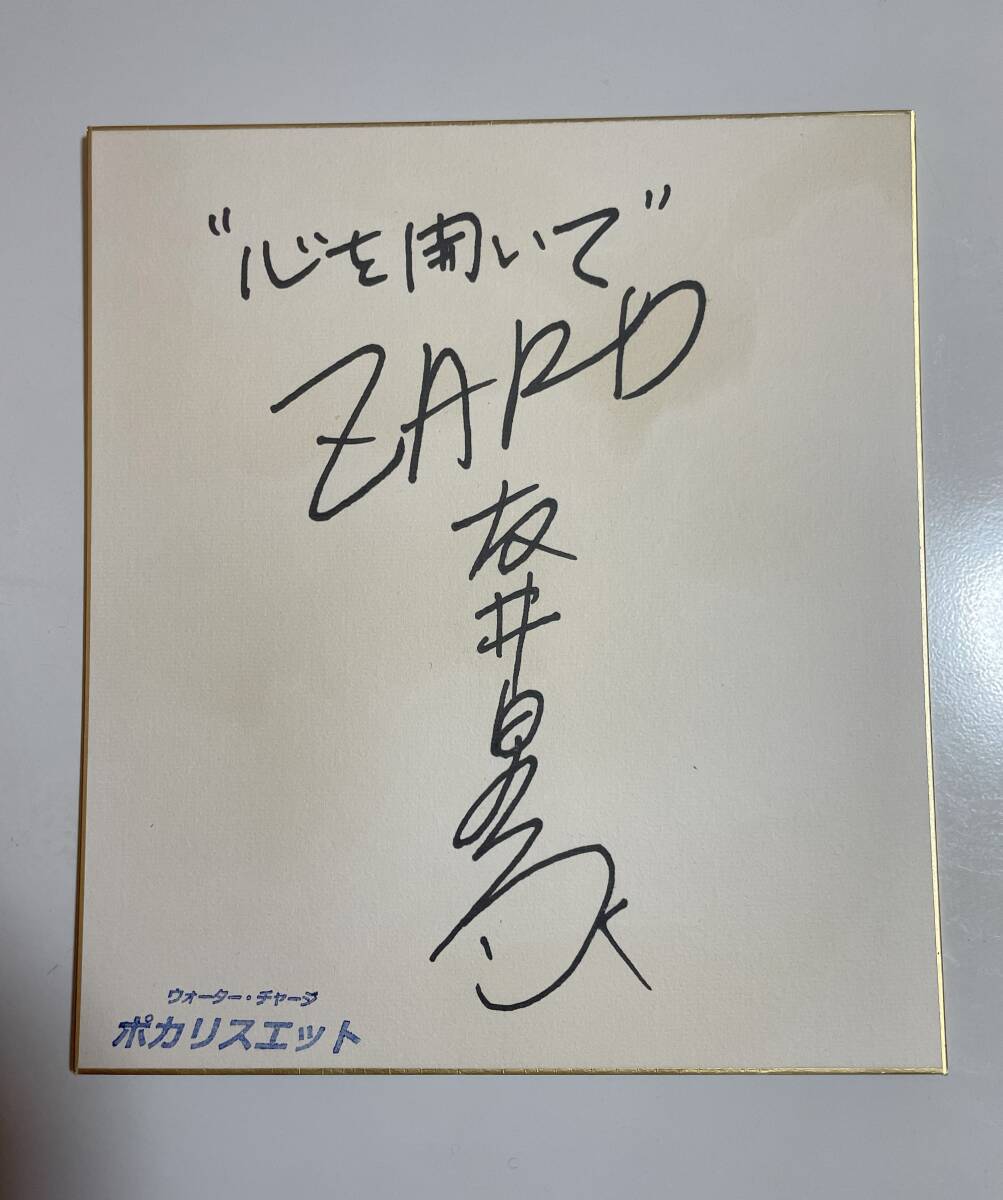 "心を開いて"
ZARD
坂井泉水
ウォーター・チャージ
ポカリスエット